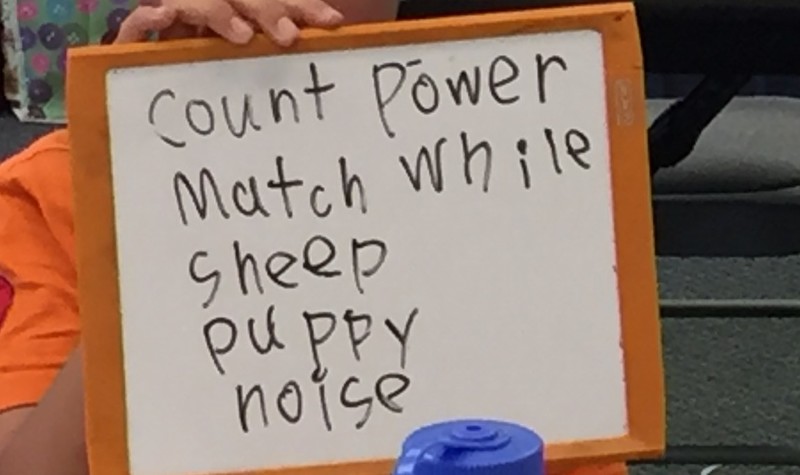 Count Power
Match While
sheep
puppy
noise